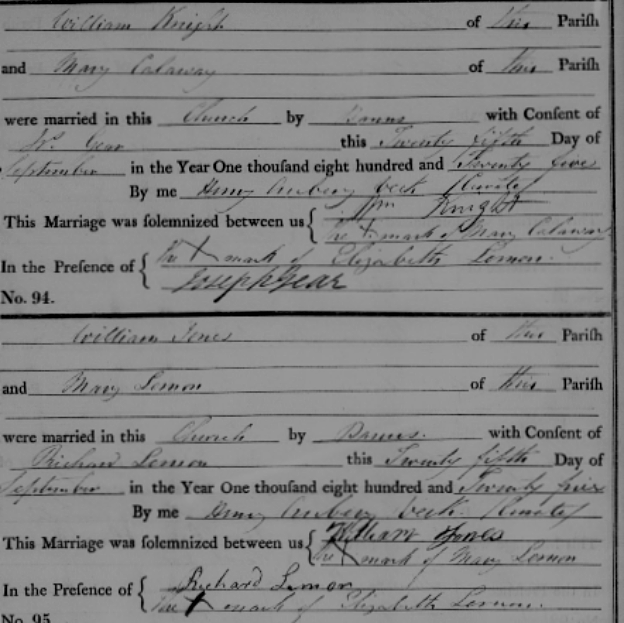 William Knight of this Parish
and Mary Calaway of this Parish
were married in this Church by Banns with Consent of
Gear this Twenty fifth Day of
September in the Year One thousand eight hundred and Twenty five
By me Henry Aubery Beck (Curate)
This Marriage was solemnized between us { Wm Knight
The X mark of Mary Calaway
In the Presence of { The X mark of Elizabeth Lemon.
Joseph Gear
No. 94.
William Jones of this Parish
and Mary Lemon of this Parish
were married in this Church by Banns. with Consent of
Richard Lemon this Twenty fifth Day of
September in the Year One thousand eight hundred and Twenty five
By me Henry Aubery Beck. (Curate)
This Marriage was solemnized between us { William Jones
The X mark of Mary Lemon
In the Presence of { Richard Lemon
The X mark of Elizabeth Lemon.
No. 95